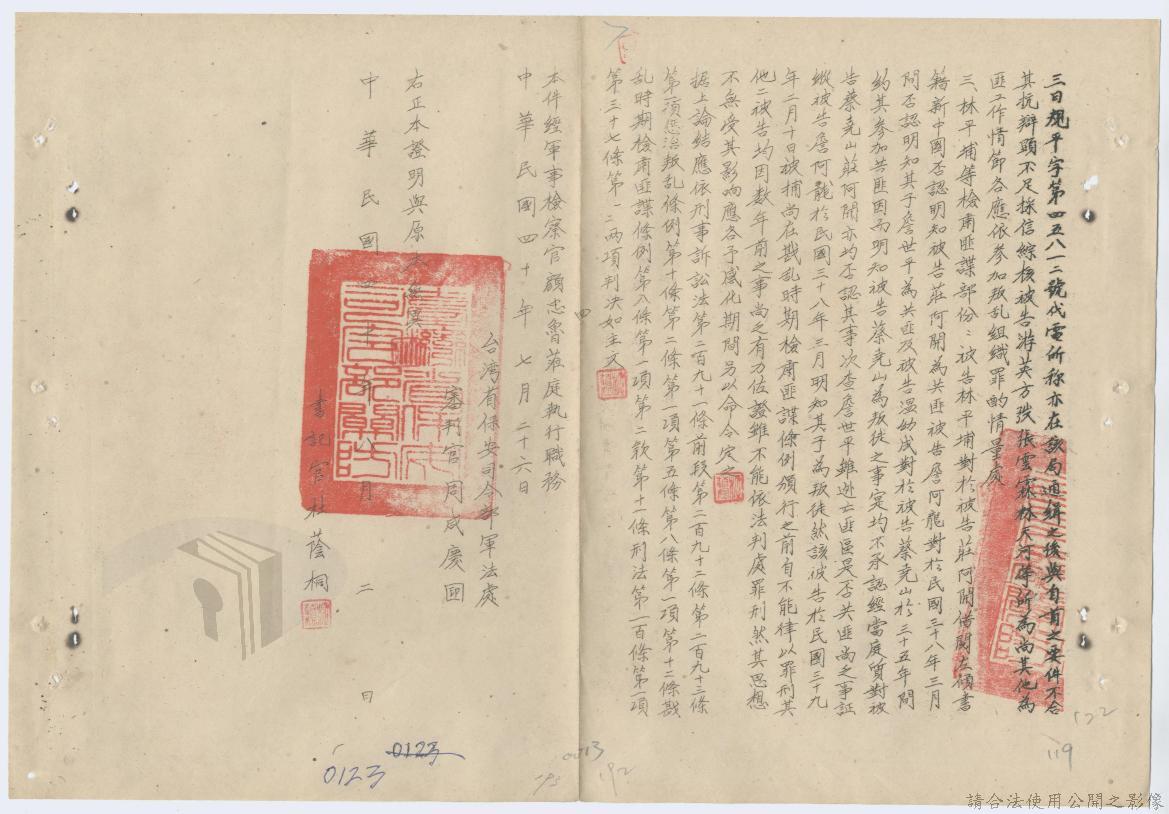 三日規平字第四五八一二號代電所称亦在該局通緝之後與自首之要件不合
其抗辯顕不足採信綜核被告游英方琰張雲霖林天河等所為尚其他為
匪工作情節各應依參加叛乱組織罪酌情量處
三、林平埔等檢肅匪諜部份：被告林平埔對於被告莊阿開借閱左傾書
籍新中國否認明知被告莊阿開為共匪被告詹阿龍對於民國三十八年三月
間否認明知其子詹世平為共匪及被告温幼成對於被告蔡堯山於三十五年間
約其參加共匪因而明知被告蔡堯山為叛徒之事定均不承認經當庭質對被
告蔡堯山莊阿開亦均否認其事次查詹世平雖逊亡匪區是否共匪尚乏事証
縱被告詹阿龍於民國三十八年三月明知其子為叛徒然該被告於民國三十九
年二月十日被捕尚在戡乱時期檢肅匪諜條例頒行之前自不能律以罪刑其
他二被告均因数年前之事尚乏有力佐證雖不能依法判處罪刑然其思想
不無受其影响應各予感化期間另以命令定之
据上論結應依刑事訴訟法第二百九十一條前段第二百九十二條第二百九十三條
第一項懲治叛乱條例第十條第二條第一項第五條第八條第一項第十二條戡
乱時期檢肅匪諜條例第八條第一項第二款第十一條刑法第一百條第一項
第三十七條第一二兩項判決如主文
本件經軍事檢察官顧忠魯蒞庭執行職務
中華民國四十年七月二十六日
台湾省保安司令部軍法處
審判官周咸慶
四
右正本證明與原本無異
中華民國四十年八月二日
書記官杜蔭桐
0123
0123
0013
192
193
122
119
請合法使用公開之影像